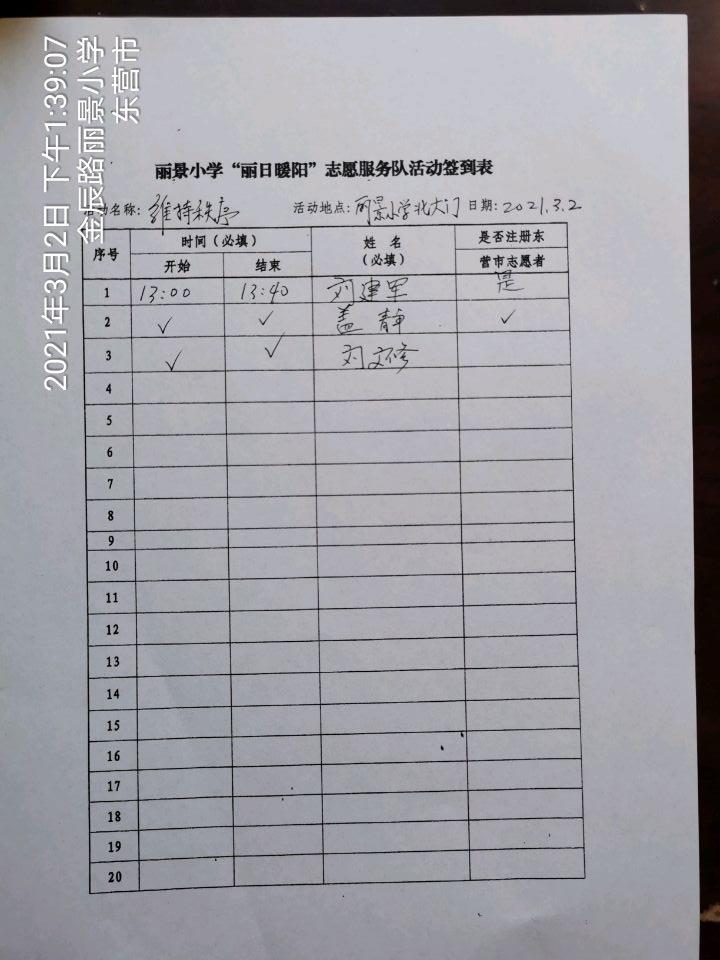 2021年3月2日 下午1:39:07
金辰路丽景小学
东营市
丽景小学“丽日暖阳”志愿服务队活动签到表
活动名称：维持秩序 活动地点：丽景小学北大门 日期：2021.3.2
序号 时间（必填） 姓 名 （必填） 是否注册东营市志愿者
开始 结束
1 13:00 13:40 刘建军 是
2 ✓ ✓ 盖静 ✓
3 ✓ ✓ 刘文修
4
5
6
7
8
9
10
11
12
13
14
15
16
17
18
19
20